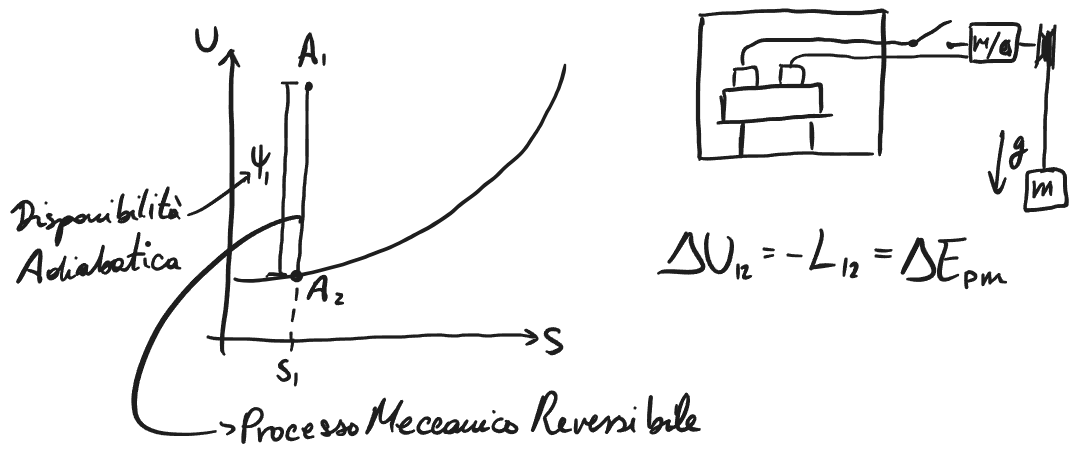 U
A₁
ψ₁
Disponibilità
Adiabatica
A₂
S
S₁
Processo Meccanico Reversibile
m/a
g
m
ΔU₁₂ = -L₁₂ = ΔEₚₘ